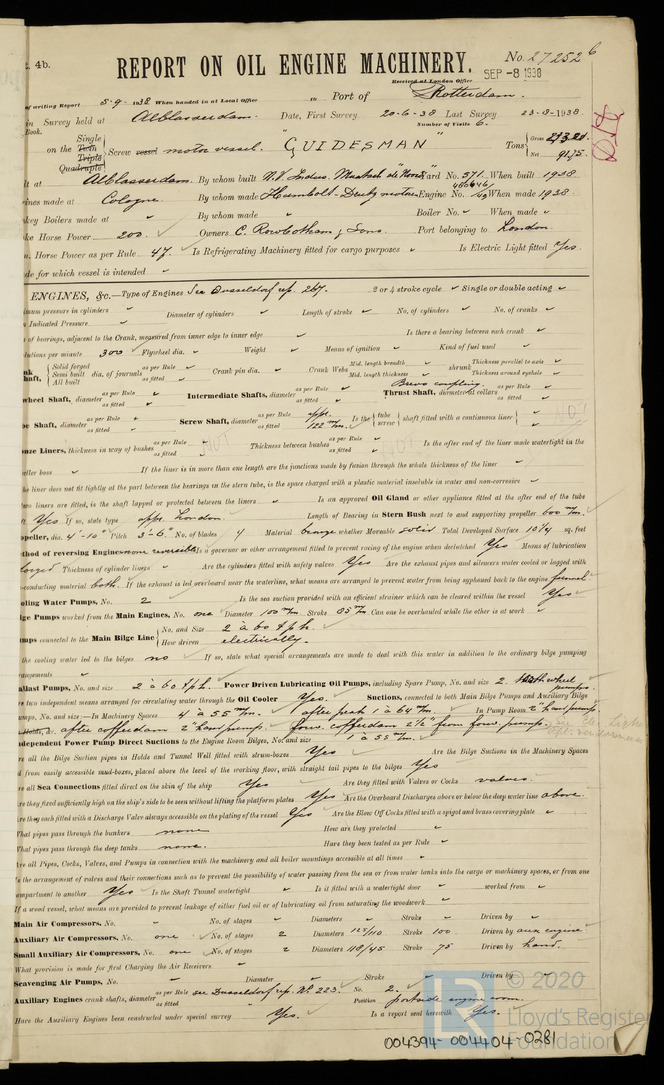 4b.
REPORT ON OIL ENGINE MACHINERY.
No. 27252
Received at London Office
SEP -8 1938
of writing Report 5-9-1938 When handed in at Local Office 19 Port of Rotterdam.
in Survey held at Alblasserdam. Date, First Survey 20-6-38 Last Survey 23-8-1938
Book. Number of Visits 6.
on the Single Twin Triple Quadruple Screw vessel motor vessel. "GUIDESMAN" Tons Gross Net
at Alblasserdam. By whom built Yard No. 571. When built 1938
ines made at Cologne. By whom made Humbolt-Deutz motoren Engine No. When made 1938.
key Boilers made at ✓ By whom made ✓ Boiler No. ✓ When made ✓
ke Horse Power 200. Owners C. Rowbotham & Sons. Port belonging to London.
Horse Power as per Rule 47. Is Refrigerating Machinery fitted for cargo purposes ✓ Is Electric Light fitted Yes.
de for which vessel is intended ✓
ENGINES, &c.—Type of Engines See Dusseldorf rep. 2 or 4 stroke cycle ✓ Single or double acting ✓
imum pressure in cylinders ✓ Diameter of cylinders ✓ Length of stroke ✓ No. of cylinders ✓ No. of cranks ✓
Indicated Pressure ✓
of bearings, adjacent to the Crank, measured from inner edge to inner edge ✓ Is there a bearing between each crank ✓
lutions per minute 300 Flywheel dia. ✓ Weight ✓ Means of ignition ✓ Kind of fuel used ✓
Solid forged Semi built All built dia. of journals as per Rule as fitted Crank pin dia. ✓ Crank Webs Mid. length breadth Mid. length thickness shrunk Thickness parallel to axis Thickness around eyehole
wheel Shaft, diameter as per Rule as fitted Intermediate Shafts, diameter as per Rule as fitted Thrust Shaft, diameter at collars as per Rule as fitted coupling.
be Shaft, diameter as per Rule as fitted Screw Shaft, diameter as per Rule app. as fitted 122 m/m. Is the tube screw shaft fitted with a continuous liner
onze Liners, thickness in way of bushes as per Rule as fitted Thickness between bushes as per Rule as fitted Is the after end of the liner made watertight in the
eller boss ✓ If the liner is in more than one length are the junctions made by fusion through the whole thickness of the liner ✓
he liner does not fit tightly at the part between the bearings in the stern tube, is the space charged with a plastic material insoluble in water and non-corrosive ✓
two liners are fitted, is the shaft lapped or protected between the liners ✓ Is an approved Oil Gland or other appliance fitted at the after end of the tube
Yes. If so, state type appr. London. Length of Bearing in Stern Bush next to and supporting propeller 600 m/m.
opeller, dia. 4'-10" Pitch 3'-6" No. of blades 4 Material bronze whether Moveable solid Total Developed Surface sq. feet
ethod of reversing Engines none reversible Is a governor or other arrangement fitted to prevent racing of the engine when declutched Yes Means of lubrication
forced Thickness of cylinder liners ✓ Are the cylinders fitted with safety valves Yes Are the exhaust pipes and silencers water cooled or lagged with
-conducting material both. If the exhaust is led overboard near the waterline, what means are arranged to prevent water from being syphoned back to the engine funnel
oling Water Pumps, No. 2 Is the sea suction provided with an efficient strainer which can be cleared within the vessel Yes
lge Pumps worked from the Main Engines, No. one Diameter 100 m/m Stroke 85 m/m. Can one be overhauled while the other is at work ✓
umps connected to the Main Bilge Line No. and Size 2 à 60 tph. How driven electrically.
the cooling water led to the bilges no If so, state what special arrangements are made to deal with this water in addition to the ordinary bilge pumping
rangements ✓
allast Pumps, No. and size 2 à 60 tph. Power Driven Lubricating Oil Pumps, including Spare Pump, No. and size 2. wheel pumps.
two independent means arranged for circulating water through the Oil Cooler Yes. Suctions, connected to both Main Bilge Pumps and Auxiliary Bilge
umps, No. and size:—In Machinery Spaces 4 à 55 m/m. after peak 1 à 64 m/m. In Pump Room 2" hand pump.
Holds, &c. after cofferdam 2" hand pump. forw. cofferdam 2½" from forw. pump.
ndependent Power Pump Direct Suctions to the Engine Room Bilges, No. and size 1 à 55 m/m.
re all the Bilge Suction pipes in Holds and Tunnel Well fitted with strum-boxes Yes Are the Bilge Suctions in the Machinery Spaces
d from easily accessible mud-boxes, placed above the level of the working floor, with straight tail pipes to the bilges Yes
re all Sea Connections fitted direct on the skin of the ship Yes Are they fitted with Valves or Cocks valves.
Are they fixed sufficiently high on the ship's side to be seen without lifting the platform plates Yes Are the Overboard Discharges above or below the deep water line above.
Are they each fitted with a Discharge Valve always accessible on the plating of the vessel Yes Are the Blow Off Cocks fitted with a spigot and brass covering plate ✓
What pipes pass through the bunkers none How are they protected ✓
What pipes pass through the deep tanks none. Have they been tested as per Rule ✓
Are all Pipes, Cocks, Valves, and Pumps in connection with the machinery and all boiler mountings accessible at all times ✓
Is the arrangement of valves and their connections such as to prevent the possibility of water passing from the sea or from water tanks into the cargo or machinery spaces, or from one
compartment to another Yes Is the Shaft Tunnel watertight ✓ Is it fitted with a watertight door ✓ worked from ✓
If a wood vessel, what means are provided to prevent leakage of either fuel oil or of lubricating oil from saturating the woodwork ✓
Main Air Compressors, No. ✓ No. of stages ✓ Diameters ✓ Stroke ✓ Driven by ✓
Auxiliary Air Compressors, No. one No. of stages 2 Diameters 125/110 Stroke 100. Driven by aux engine
Small Auxiliary Air Compressors, No. one No. of stages 2 Diameters 118/45 Stroke 75 Driven by hand.
What provision is made for first Charging the Air Receivers ✓
Scavenging Air Pumps, No. ✓ Diameter ✓ Stroke ✓ Driven by ✓
Auxiliary Engines crank shafts, diameter as per Rule as fitted see Dusseldorf rep. No. 223. No. 2. Position portside engine room.
Have the Auxiliary Engines been constructed under special survey Yes. Is a report sent herewith Yes.
© 2020
Lloyd's Register
Foundation
004394-004404-0281